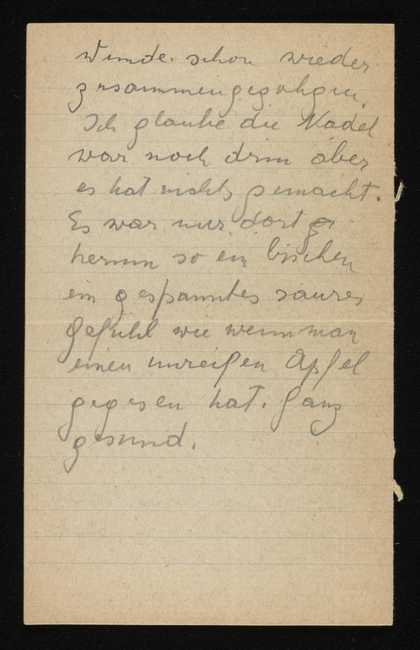 Wunde schon wieder
zusammengezogen.
Ich glaube die Nadel
war noch drin aber
es hat nichts gemacht.
Es war nur dort
herum so ein bischen
ein gespanntes saures
gefühl wie wenn man
einen unreifen Apfel
gegesen hat. Ganz
gesund.